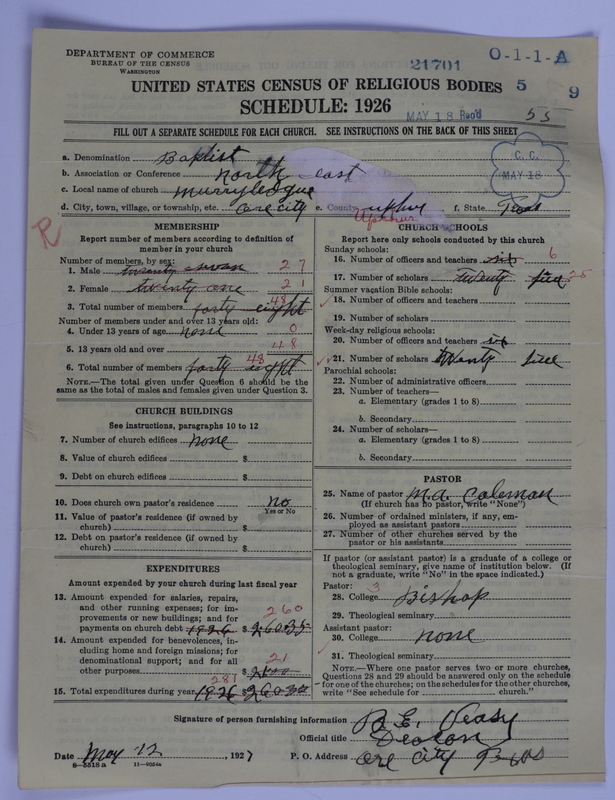 DEPARTMENT OF COMMERCE
BUREAU OF THE CENSUS
WASHINGTON
21701
O-1-1-A
UNITED STATES CENSUS OF RELIGIOUS BODIES
5 9
SCHEDULE: 1926
MAY 18 Rec'd
55
FILL OUT A SEPARATE SCHEDULE FOR EACH CHURCH. SEE INSTRUCTIONS ON THE BACK OF THIS SHEET
C. C.
MAY 18
a. Denomination Baptist
b. Association or Conference north east
c. Local name of church
d. City, town, village, or township, etc. ore city e. County upshur f. State Texas
Upshur
R
MEMBERSHIP
Report number of members according to definition of member in your church
Number of members, by sex:
1. Male twenty 27
2. Female twenty one 21
3. Total number of members forty eight 48
Number of members under and over 13 years old:
4. Under 13 years of age none 0
5. 13 years old and over 48
6. Total number of members forty eight 48
NOTE.—The total given under Question 6 should be the same as the total of males and females given under Question 3.
CHURCH BUILDINGS
See instructions, paragraphs 10 to 12
7. Number of church edifices none
8. Value of church edifices $
9. Debt on church edifices $
10. Does church own pastor's residence no
Yes or No
11. Value of pastor's residence (if owned by church) $
12. Debt on pastor's residence (if owned by church) $
EXPENDITURES
Amount expended by your church during last fiscal year
13. Amount expended for salaries, repairs, and other running expenses; for improvements or new buildings; and for payments on church debt 1926 $ 260
14. Amount expended for benevolences, including home and foreign missions; for denominational support; and for all other purposes $ 21
281
15. Total expenditures during year 1926 $
CHURCH SCHOOLS
Report here only schools conducted by this church
Sunday schools:
16. Number of officers and teachers six 6
17. Number of scholars twenty five 25
Summer vacation Bible schools:
18. Number of officers and teachers
19. Number of scholars
Week-day religious schools:
20. Number of officers and teachers six
21. Number of scholars twenty five
Parochial schools:
22. Number of administrative officers
23. Number of teachers—
a. Elementary (grades 1 to 8)
b. Secondary
24. Number of scholars—
a. Elementary (grades 1 to 8)
b. Secondary
PASTOR
25. Name of pastor M. A. Coleman
(If church has no pastor, write "None")
26. Number of ordained ministers, if any, employed as assistant pastors
27. Number of other churches served by the pastor or his assistants
If pastor (or assistant pastor) is a graduate of a college or theological seminary, give name of institution below. (If not a graduate, write "No" in the space indicated.)
Pastor: 3
28. College Bishop
29. Theological seminary
Assistant pastor:
30. College none
31. Theological seminary
NOTE.—Where one pastor serves two or more churches, Questions 28 and 29 should be answered only on the schedule for one of the churches; on the schedules for the other churches, write "See schedule for church."
Signature of person furnishing information
Official title Deacon
Date May 12, 1927 P. O. Address ore city Texas
8-5518a 11-9054a